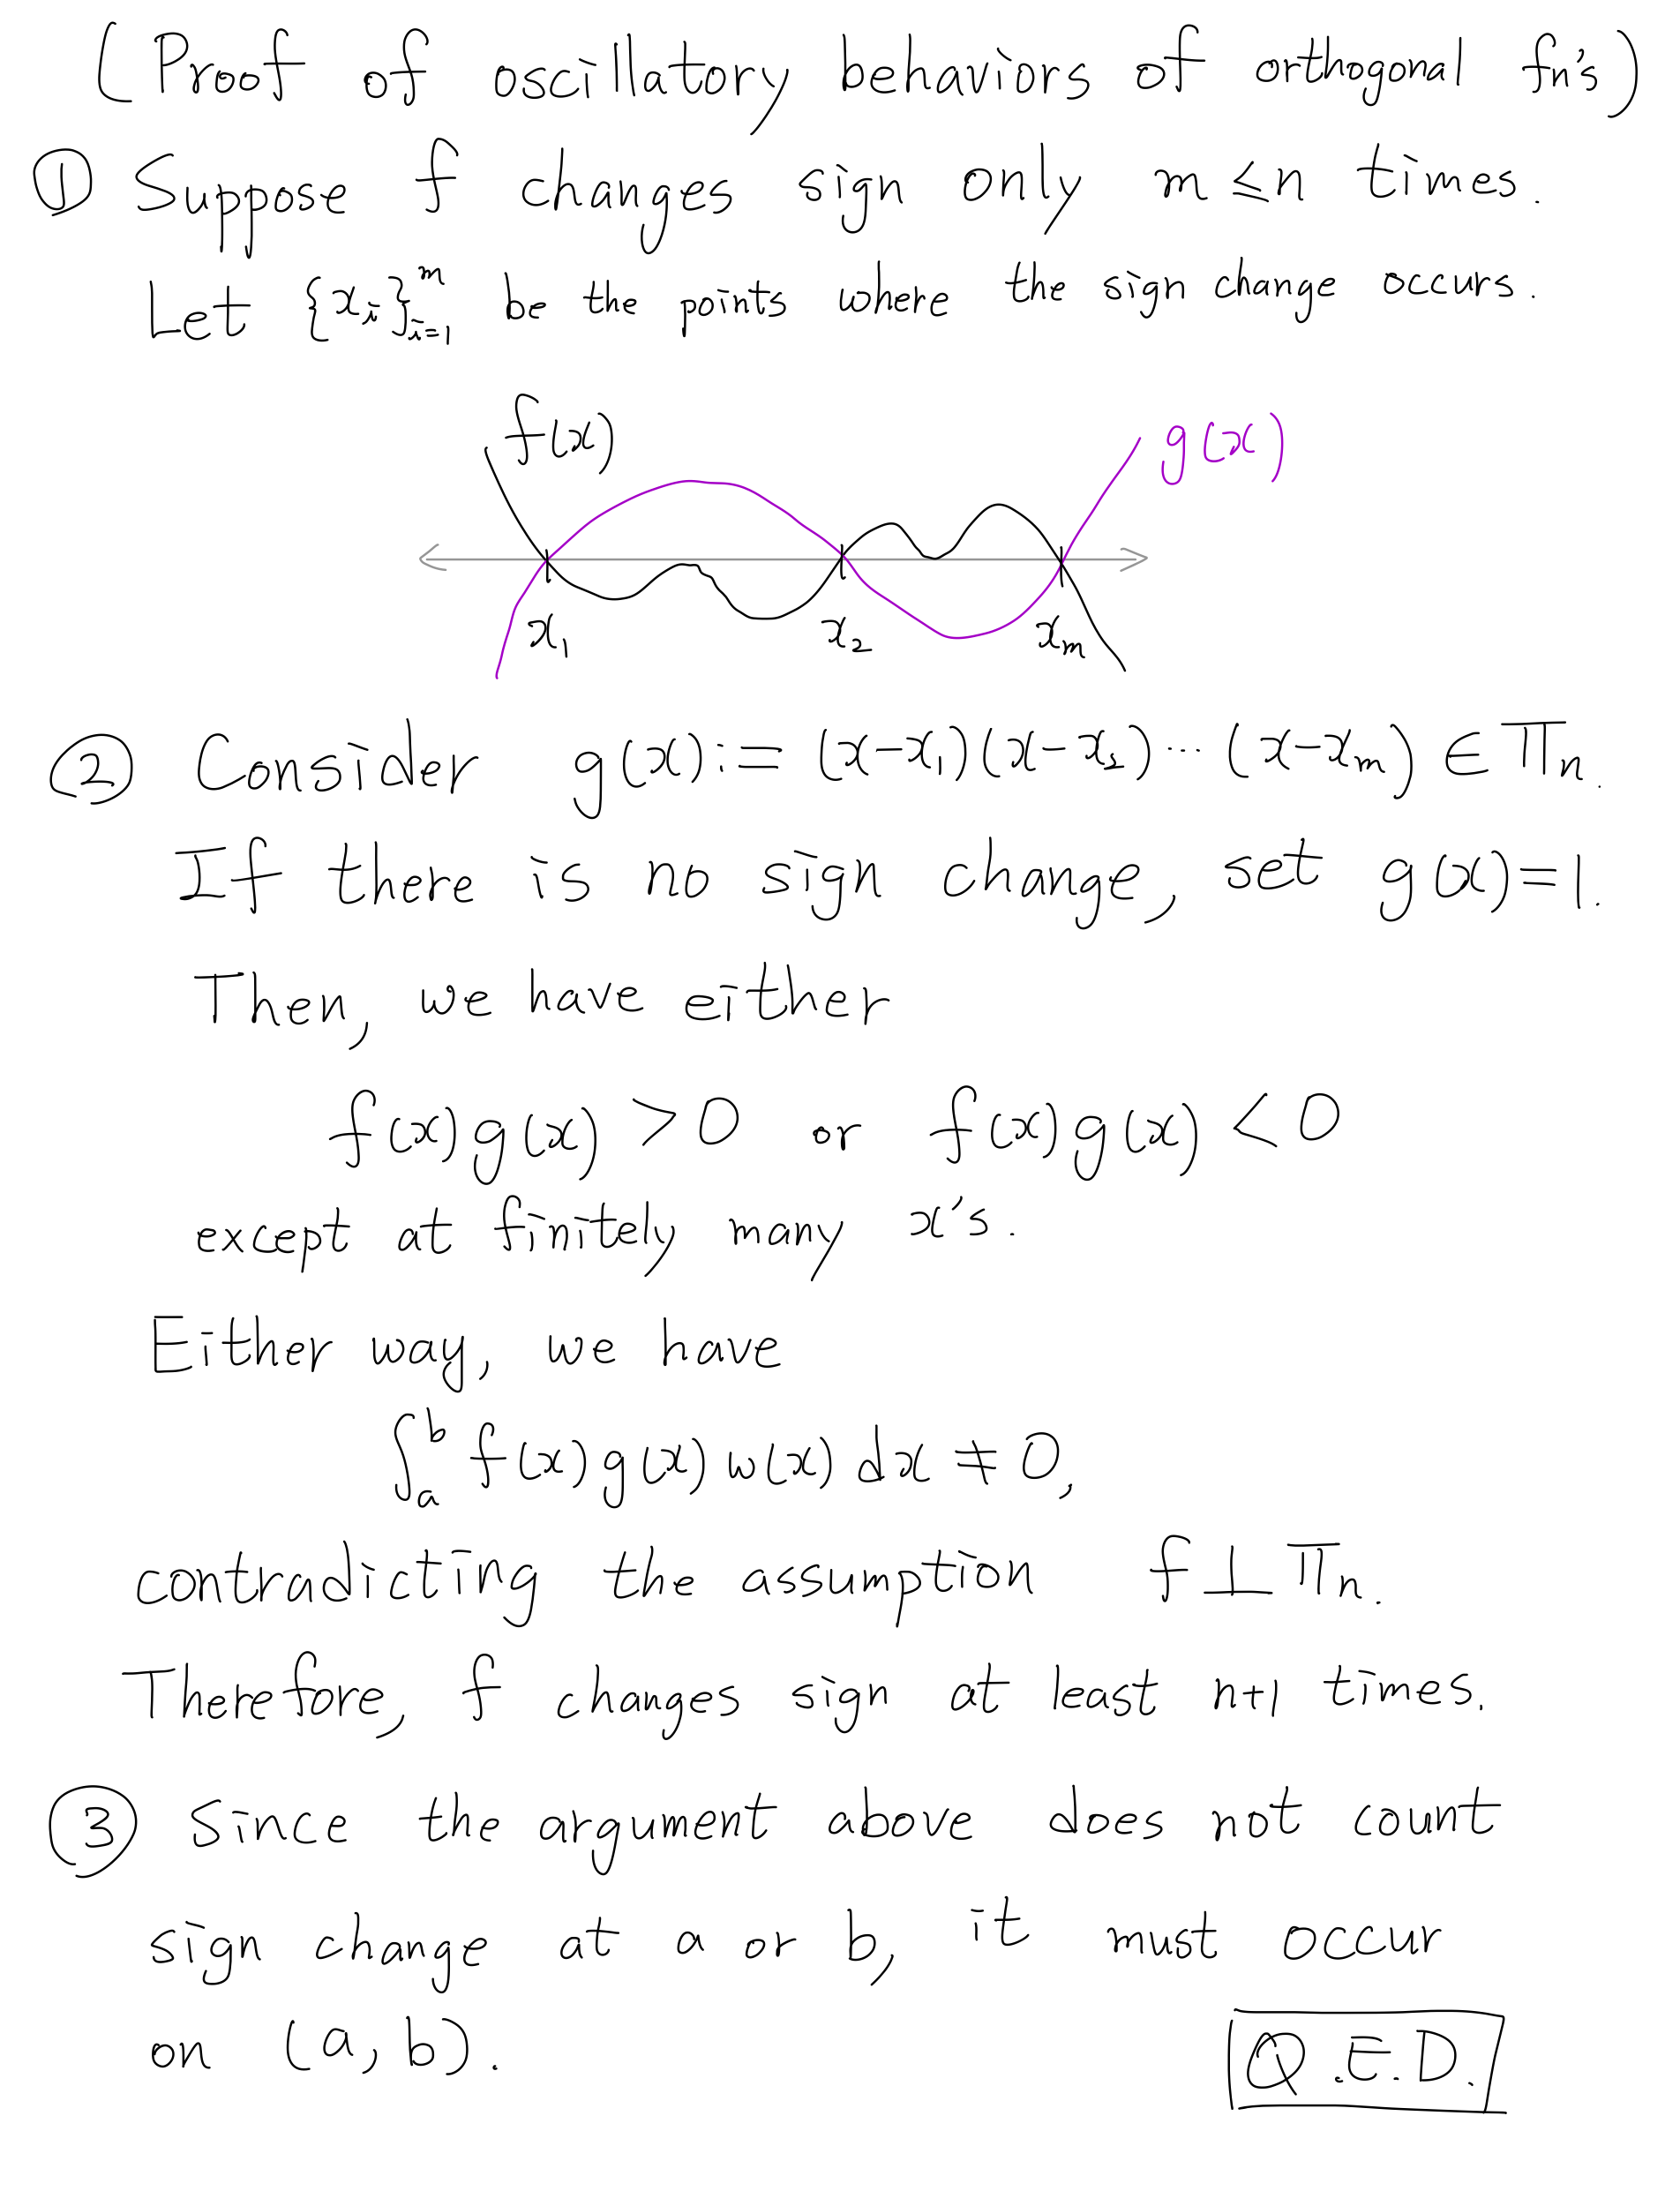 (Proof of oscillatory behaviors of orthogonal fn's)
① Suppose f changes sign only m ≤ n times.
Let {x_i}_{i=1}^m be the points where the sign change occurs.
f(x) g(x)
x_1 x_2 x_m
② Consider g(x) := (x-x_1)(x-x_2)⋯(x-x_m) ∈ Π_n.
If there is no sign change, set g(x)=1.
Then, we have either
f(x)g(x) > 0 or f(x)g(x) < 0
except at finitely many x's.
Either way, we have
∫_a^b f(x)g(x)w(x)dx ≠ 0,
contradicting the assumption f ⊥ Π_n.
Therefore, f changes sign at least n+1 times.
③ Since the argument above does not count
sign change at a or b, it must occur
on (a, b).
Q.E.D.